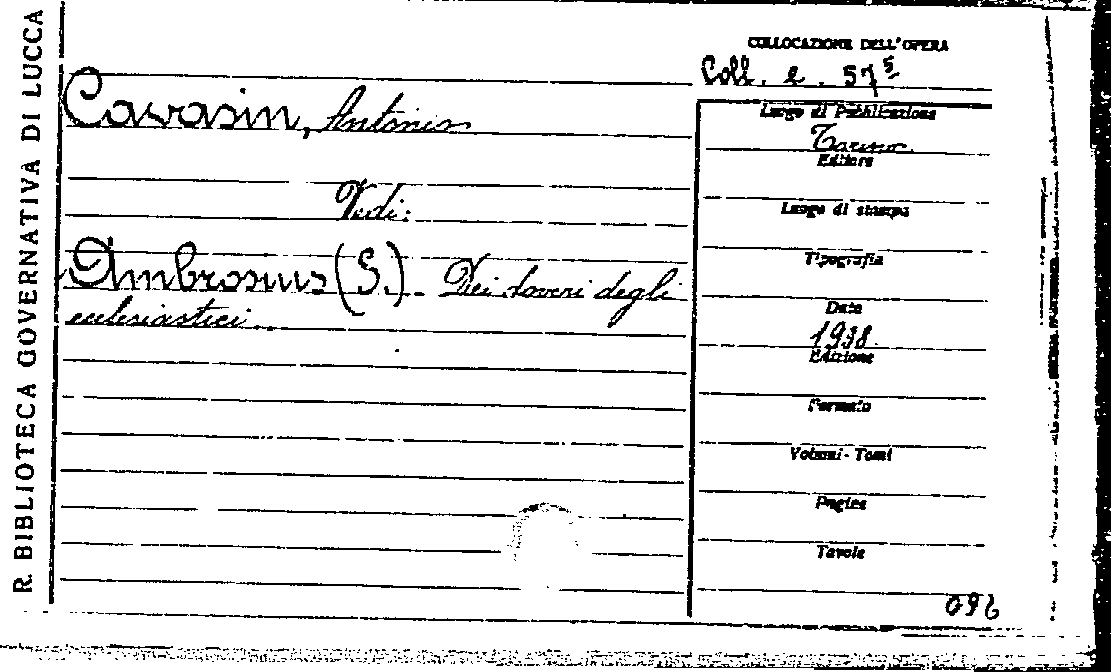 R. BIBLIOTECA GOVERNATIVA DI LUCCA
COLLOCAZIONE DELL'OPERA
Coll. e. 57⁵
Cavasin, Antonio
Vedi:
Ambrosius (S.). Dei doveri degli
ecclesiastici.
Luogo di Pubblicazione
Torino
Editore
Luogo di stampa
Tipografia
Data
1938.
Edizione
Formato
Volumi - Tomi
Pagine
Tavole